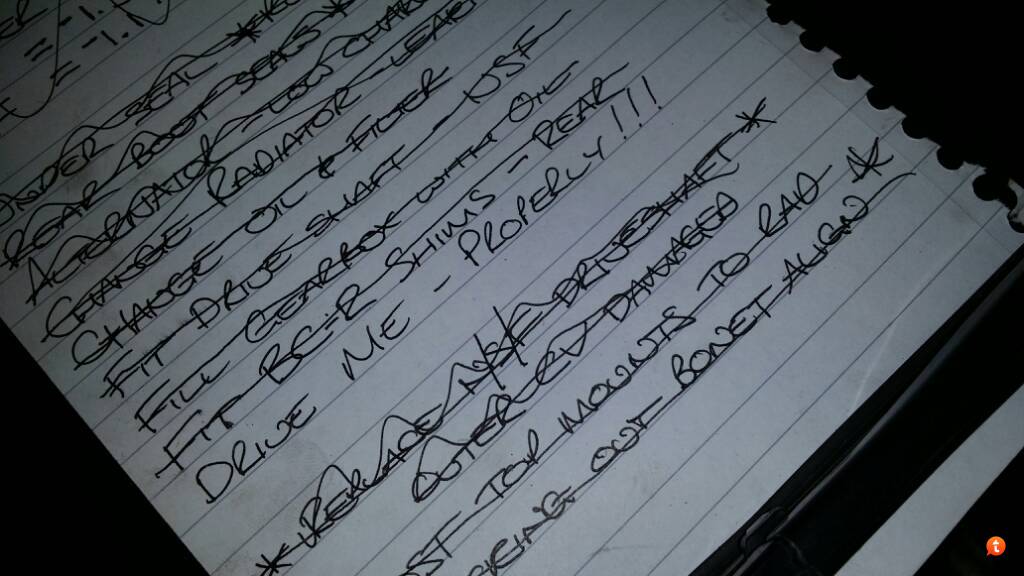 = -1.1
= -1.
UNDER SEAL *
*REAR BOOT SEALS*
ALTERNATOR - LOW CHAR
CHANGE RADIATOR - LEAK
CHANGE OIL & FILTER
FIT DRIVESHAFT - NSF
FILL GEARBOX WITH OIL
FIT BC-R SHIMS - REAR
DRIVE ME - PROPERLY!!!
* REPLACE N/S/F DRIVESHAFT *
OUTER CV DAMAGED
TOP MOUNTS TO RAD *
OUT BONET ALIGN
t